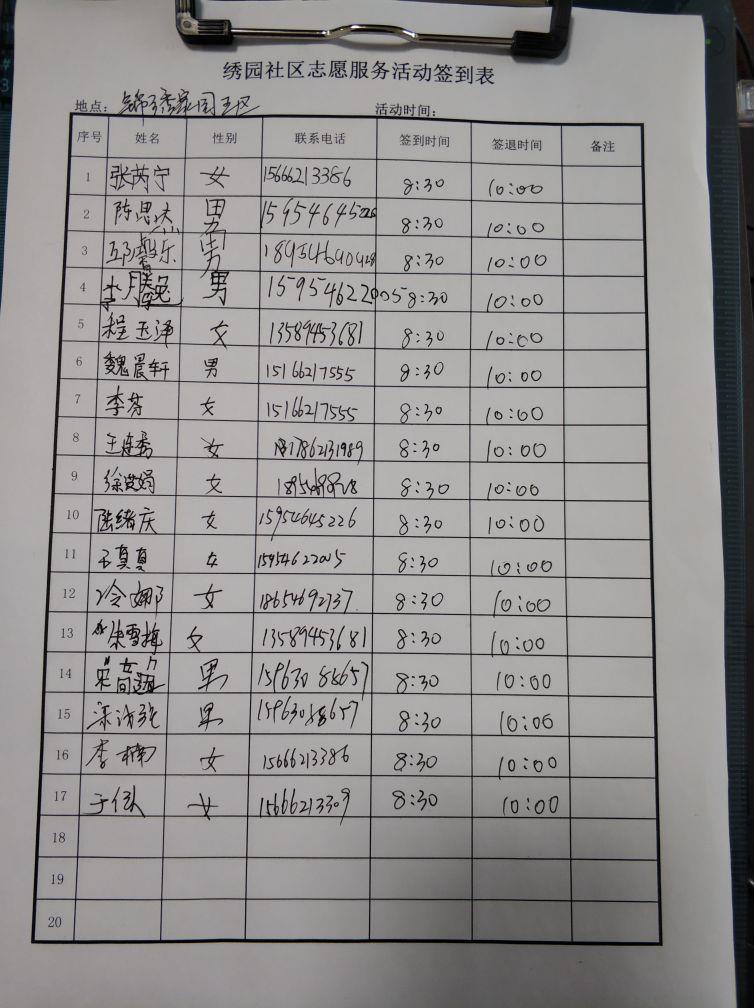 绣园社区志愿服务活动签到表
地点：锦绣家园五区 活动时间：
序号 姓名 性别 联系电话 签到时间 签退时间 备注
1 张芮宁 女 15666213386 8:30 10:00
2 陈思 男 15954645226 8:30 10:00
3 乐 男 8:30 10:00
4 李 男 15954622005 8:30 10:00
5 程玉泽 女 13589453681 8:30 10:00
6 魏晨轩 男 15166217555 8:30 10:00
7 李芬 女 15166217555 8:30 10:00
8 王连秀 女 17862131989 8:30 10:00
9 徐 娟 女 8:30 10:00
10 陈绪庆 女 15954645226 8:30 10:00
11 王真真 女 15954622005 8:30 10:00
12 冷娜 女 18654692737 8:30 10:00
13 朱雪梅 女 13589453681 8:30 10:00
14 男 8:30 10:00
15 男 8:30 10:00
16 李楠 女 15666213386 8:30 10:00
17 于 女 15666213309 8:30 10:00
18
19
20